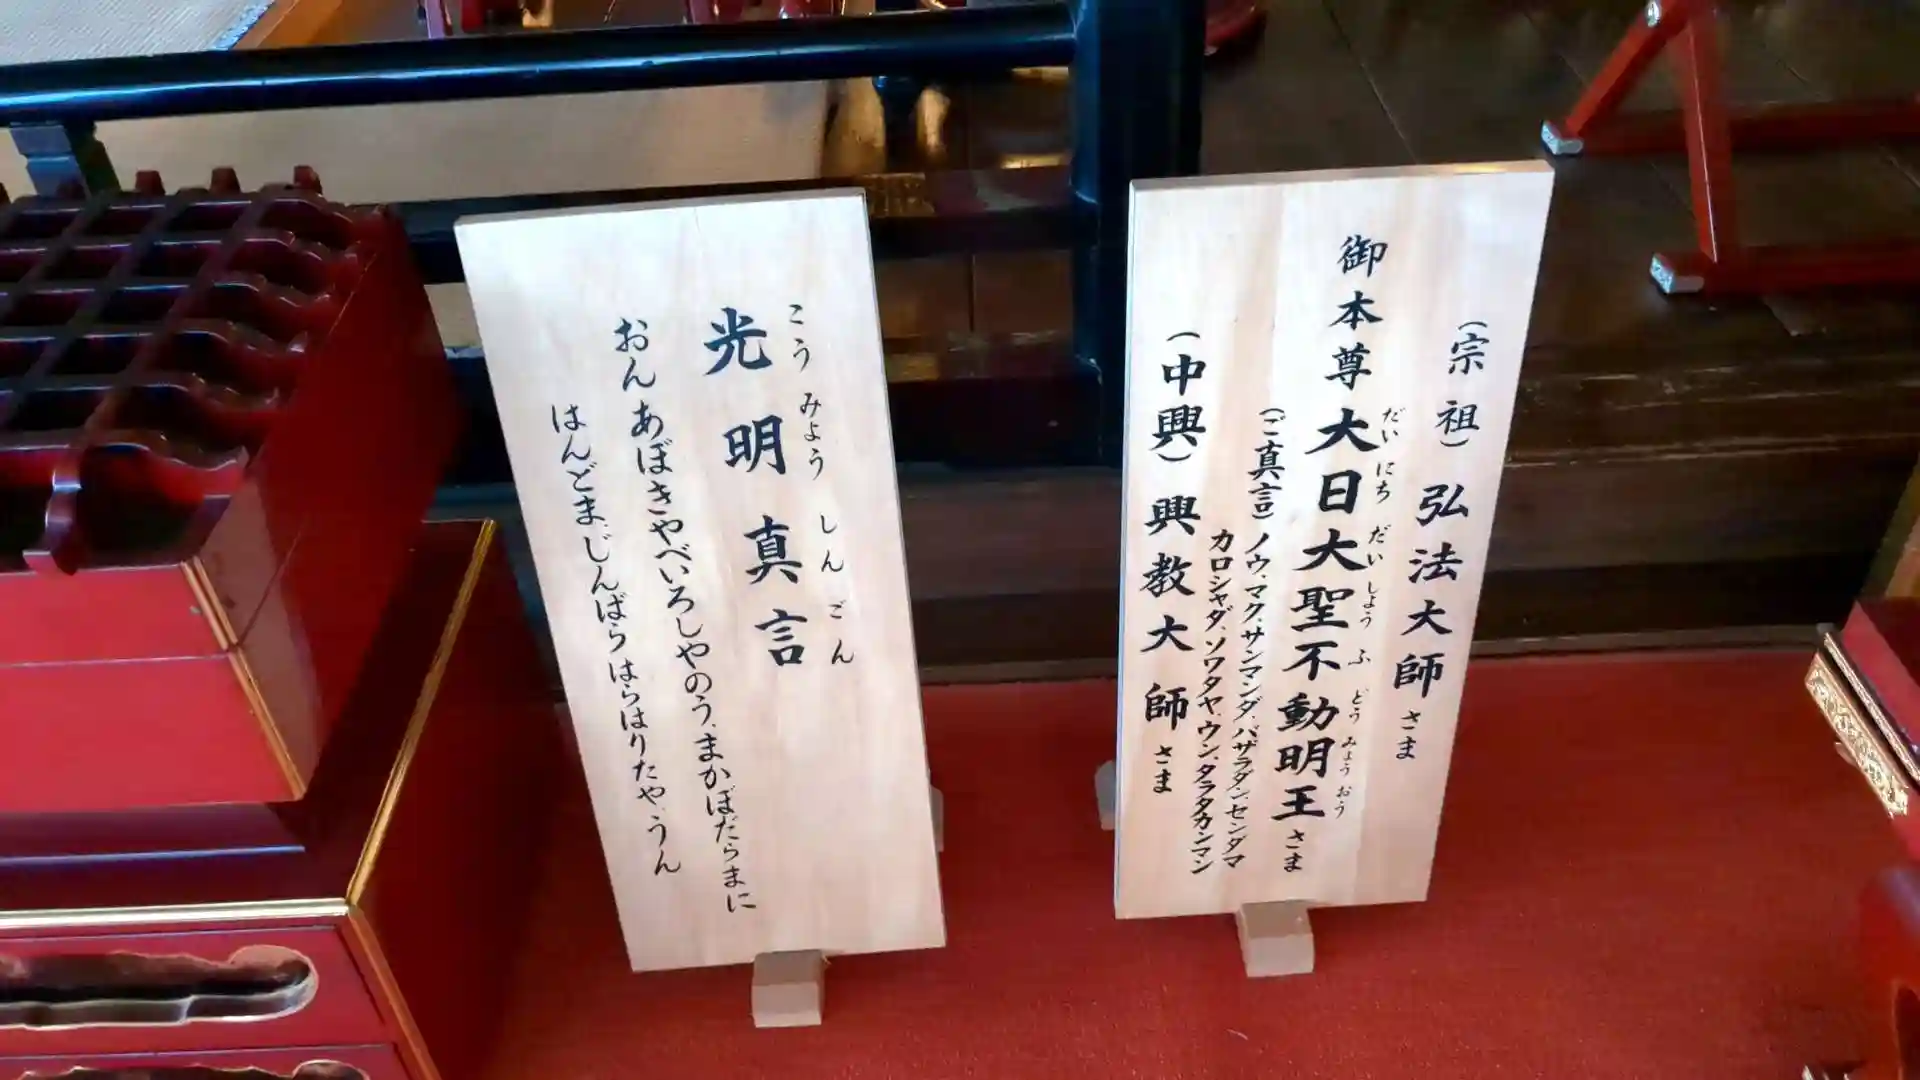 光明真言
こうみょうしんごん
おん あぼきやべいろしやのう、まかぼだらまに
はんどま、じんばら はらはりたや、うん
(宗祖) 弘法大師さま
御本尊 大日大聖不動明王さま
だいにちだいしょうふどうみょうおう
(ご真言) ノウ、マク、サンマンダ、バザラダン、センダマ
カロシャダ、ソワタヤ、ウン、タラタカンマン
(中興) 興教大師さま